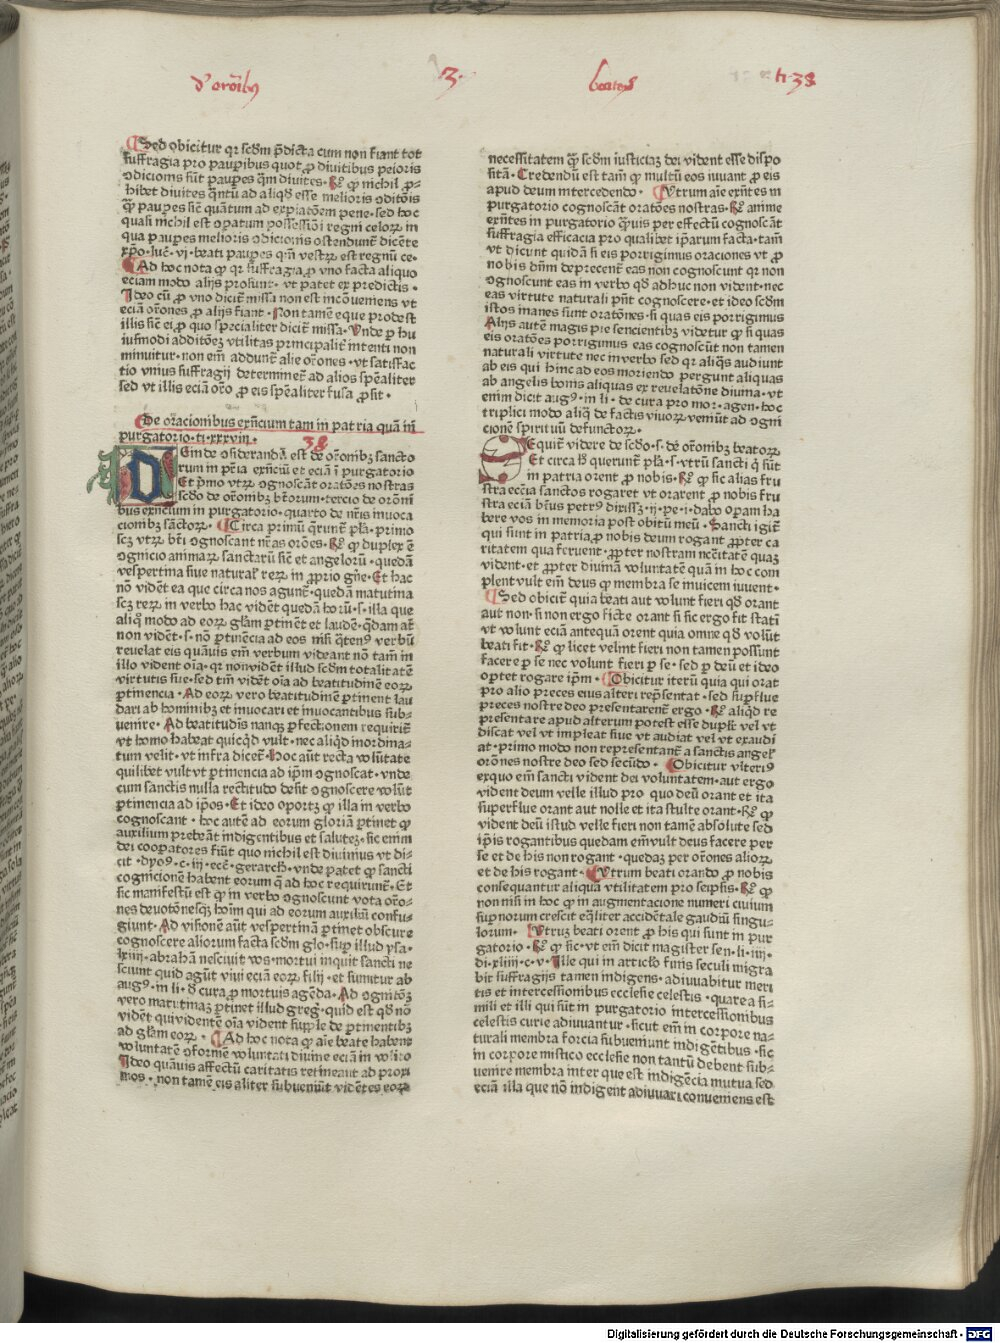 d' orōibȝ 3. beatoꝝ ti 38
Sed obicitur qꝛ scdm p̄dicta cum non fiant tot
suffragia pro pauꝑibus quot ꝓ diuitibus peioris
ɔdicionis sūt pauꝑes q̄m diuites. Rn̄. ꝙ nichil ꝓ-
hibet diuites q̄ntū ad aliqd esse melioris ɔditōis
ꝙ pauꝑes sic̄ quātum ad expiatōem pene. sed hoc
quasi nichil est ɔpatum possessiōi regni celoꝝ in
qua pauꝑes melioris ɔdicionis ostendunt̄ dicēte
xp̄o. luc̄. vj. beati pauꝑes qm̄ vestꝝ est regnū ce.
Ad hoc nota ꝙ qꝛ suffragia ꝓ vno facta aliquo
eciam modo alijs prosunt. vt patet ex predictis.
Ideo cū ꝓ vno dicit̄ missa non est incōueniens vt
eciā or̄ones ꝓ alijs fiant. Non tamē eque prodest
illis sic̄ ei ꝓ quo specialiter dicit̄ missa. Vnde ꝑ hu
iusmodi additōeȝ vtilitas principalit̄ intenti non
minuitur. non em̄ addunt̄ alie or̄ones. vt satisfac
tio vnius suffragij determinet̄ ad alios sp̄ealiter
sed vt illis eciā or̄o ꝓ eis sp̄ealiter fusa ꝓsit.
De or̄acionibus exn̄cium tam in patria quā in
purgatorio. ti. xxxviij. 38
DEinde ɔsiderandū est de or̄onibȝ sancto
rum in pr̄ia exn̄ciū et eciā ī purgatorio
Et p̄mo vtꝝ ɔgnoscāt oratōes nostras
scdo de or̄onibȝ bt̄orum. tercio de orōni
bus exn̄cium in purgatorio. quarto de nr̄is inuoca
cionibȝ sāctoꝝ. Circa primū q̄runt̄ pl̄a. primo
scȝ vtꝝ bt̄i ɔgnoscant nr̄as orōes. Rn̄. ꝙ duplex ē
ɔgnicio animaꝝ sanctarū sic̄ et angeloꝝ. quedā
vespertina siue natural' reꝝ in ꝓprio gn̄e. Et hac
nō vidēt ea que circa nos agunt̄. quedā matutina
scȝ reꝝ in verbo hac vidēt quedā horū. s. illa que
aliqͦ modo ad eoꝝ glām ꝑtinēt et laudē. q̄dam at̄
non vidēt. s. nō ꝑtinēcia ad eos nisi qͣtenꝰ verbū
reuelat eis quāuis em̄ verbum videant nō tam̄ in
illo vident oīa. qꝛ non vidēt illud scdm totalitatē
virtutis sue. sed tm̄ vidēt oīa ad beatitudinē eoꝝ
ꝑtinencia. Ad eoꝝ vero beatitudinē ꝑtinent lau
dari ab hominibȝ et inuocari et inuocantibus sub-
uenire. Ad beatitudīs nanqȝ ꝑfectionem requirit̄
vt homo habeat quicqd vult. nec aliqd inordina-
tum velit. vt infra dicet̄. Hoc aut̄ recta volūtate
quilibet vult vt ꝑtinencia ad ip̄m ɔgnoscat. vnde
cum sanctis nulla rectitudo desit ɔgnoscere volūt
ꝑtinencia ad ip̄os. Et ideo oportȝ ꝙ illa in verbo
cognoscant. hoc autē ad eorum gloriā ꝑtinet ꝙ
auxilium prebeāt indigentibus et saluteȝ. sic enim
dei coopatores fiūt quo nichil est diuinius vt di-
cit. dyoꝰ. c. iij. ecc̄. gerarch'. vnde patet ꝙ sancti
cognicionē habent eorum q̄ ad hoc requirunt̄. Et
sic manifestū est ꝙ in verbo ɔgnoscunt vota or̄o-
nes deuotōnesqȝ hoīm qui ad eorum auxiliū confu-
giunt. Ad visionē aūt vespertinā ꝑtinet obscure
cognoscere aliorum facta scdm glo. sup̄ illud ysa.
lxiij. abrahā nesciuit vos. mortui inquit sancti ne
sciunt quid agūt viui eciā eoꝝ filij. et sumitur ab
augꝰ. in li. d' cura ꝓ mortuis agēda. Ad ɔgnitōȝ
vero matutinaȝ ꝑtinet illud greg'. quid est qd nō
vidēt qui vidente oīa vident suple de ꝑtinentibȝ
ad glām eoꝝ. Ad hoc nota ꝙ aīe beate habent
volūtatē ɔformē voluntati diuine eciā in volito
Ideo quāuis affectū caritatis retineant ad proxi
mos. non tamē eis aliter subueniūt vidētes eoꝝ
necessitatem ꝙ scdm iusticiaȝ dei vident esse dispo
sitā. Credendū est tam̄ ꝙ multū eos iuuant ꝓ eis
apud deum intercedendo. Vtrum aīe exn̄tes in
purgatorio cognoscāt oratōes nostras. Rn̄. anime
exn̄tes in purgatorio qͣuis per effectū cognoscāt
suffragia efficacia pro qualibet ip̄arum facta. tam̄
vt dicunt quidā si eis porrigimus oraciones vt ꝓ
nobis dn̄m deprecent̄ eas non cognoscunt qꝛ non
ɔgnoscunt eas in verbo qd adhuc non vident. nec
eas virtute naturali pn̄t cognoscere. et ideo scdm
istos inanes sunt oratōnes. si quas eis porrigimus
Alijs autē magis pie sencientibȝ videtur ꝙ si quas
eis oratōes porrigimus eas cognoscūt non tamen
naturali virtute nec in verbo sed qꝛ aliqͣs audiunt
ab eis qui hinc ad eos moriendo pergunt aliquas
ab angelis bonis aliquas ex reuelatōne diuina. vt
enim dicit augꝰ. in li. de cura pro mor. agen. hoc
triplici modo aliqͣ de factis viuoꝝ veniūt ad ogni
cionē spirituū defunctoꝝ.
SEquit̄ videre de scdo. s. de or̄onibȝ beatoꝝ
Et circa hͦ querunt̄ pl̄a. s. vtrū sancti q̄ sūt
in patria orent ꝓ nobis. Rn̄. ꝙ sic alias fru
stra ecc̄ia sanctos rogaret vt orarent ꝓ nobis fru
stra eciā bt̄us petrꝰ dixissȝ. ij. pe. i. dabo oꝑam ha
bere vos in memoria post obitū meū. Sancti igit̄
qui sunt in patria ꝓ nobis deum rogant ꝓpter ca
ritatem qua feruent. ꝓpter nostram nc̄citatē quaȝ
vident. et ꝓpter diuinā voluntatē quā in hoc com
plent vult em̄ deus ꝙ membra se inuicem iuuent.
Sed obicit̄ quia beati aut volunt fieri qd orant
aut non. si non ergo ficte orant si sic ergo fit statī
vt volunt eciā antequā orent quia omne qd volūt
beati fit. Rn̄. ꝙ licet velint fieri non tamen possunt
facere ꝑ se nec volunt fieri ꝑ se. sed ꝑ deū et ideo
oꝑtet rogare ip̄m. Obicitur iterū quia qui orat
pro alio preces eius alteri rep̄sentat. sed suꝑflue
preces nostre deo presentarent̄ ergo. Rn̄. aliqd re
presentare apud alterum potest esse duplr̄. vel vt
discat vel vt impleat siue vt audiat vel vt exaudi
at. primo modo non representant̄ a sanctis angel'
orōnes nostre deo sed secūdo. Obicitur vlteriꝰ
exquo em̄ sancti vident dei voluntatem. aut ergo
vident deum velle illud pro quo deū orant et ita
superflue orant aut nolle et ita stulte orant. Rn̄. ꝙ
vident deū istud velle fieri non tamē absolute sed
ip̄is rogantibus quedam em̄ vult deus facere per
se et de his non rogant. quedaȝ per or̄ones alioꝝ
et de his rogant. Vtrum beati orando ꝓ nobis
consequantur aliquā vtilitatem pro seipsis. Rn̄. ꝙ
non nisi in hoc ꝙ in augmentacione numeri ciuium
suꝑnorum crescit eqͣliter accidētale gaudiū singu-
lorum. Vtruȝ beati orent ꝓ his qui sunt in pur
gatorio. Rn̄. ꝙ sic. vt em̄ dicit magister sen. li. iiij.
di. xliiij. c. v. Ille qui in articlo finis seculi migra
bit suffragijs tamen indigens. adiuuabitur meri
tis et intercessionibus ecclesie celestis. quare a si-
mili et illi qui sūt in purgatorio intercessionibus
celestis curie adiuuantur. sicut em̄ in corpore na-
turali membra forcia subueniunt indigētibus. sic
in corpore mistico ecclesie non tantū debent sub-
uenire membra inter que est indigēcia mutua sed
eciā illa que nō indigent adiuuari conueniens est
Digitalisierung gefördert durch die Deutsche Forschungsgemeinschaft - DFG